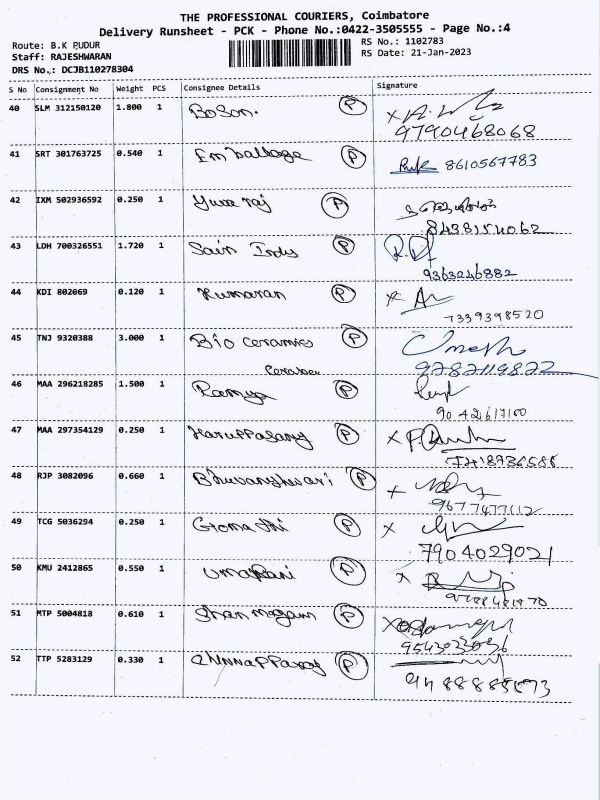 THE PROFESSIONAL COURIERS, Coimbatore
Delivery Runsheet - PCK - Phone No.:0422-3505555 - Page No.:4
Route: B.K PUDUR
RS No.: 1102783
Staff: RAJESHWARAN
RS Date: 21-Jan-2023
DRS No.: DCJB110278304
S No Consignment No Weight PCS Consignee Details Signature
40 SLM 312150120 1.800 1 Boson. P
9790468068
41 SRT 301763725 0.540 1 Emballage P 8610567783
42 IXM 502936592 0.250 1 Yuva raj P
8438154062
43 LDH 700326551 1.720 1 Sain Indus P
9363246882
44 KDI 802069 0.120 1 Kumaran P
7339398520
45 TNJ 9320388 3.000 1 Bio ceramics P Umesh
9787119822
46 MAA 296218285 1.500 1 Ramya P
47 MAA 297354129 0.250 1 Karuppasamy P
48 RJP 3082096 0.660 1 Bhuvaneshwari P
9677477112
49 TCG 5036294 0.250 1 Gomathi P
7904029021
50 KMU 2412865 0.550 1 Uma Rani P
51 MTP 5004818 0.610 1 Shanmugam P
52 TTP 5283129 0.330 1 Chinnappasamy P